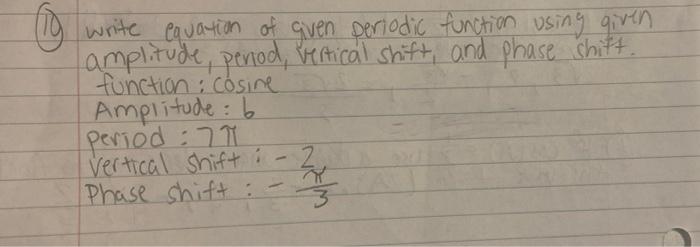 10 write equation of given periodic function using given
amplitude, period, vertical shift, and phase shift.
function : cosine
Amplitude : 6
period : 7π
vertical shift : - 2
Phase shift : - π/3